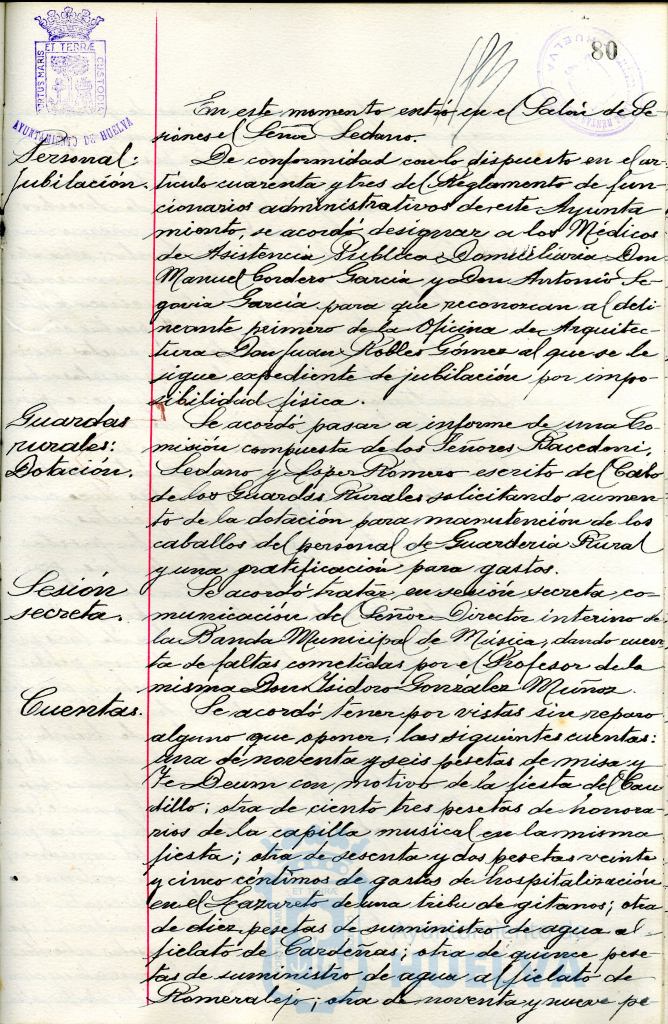 80
PORTUS MARIS ET TERRÆ CUSTODIA
AYUNTAMIENTO DE HUELVA
En este momento entró en el Salón de Se-
siones el Señor Sedano.
Personal:
Jubilación.
De conformidad con lo dispuesto en el ar-
tículo cuarenta y tres del Reglamento de fun-
cionarios administrativos de este Ayunta-
miento, se acordó designar a los Médicos
de Asistencia Pública Domiciliaria Don
Manuel Cordero García y Don Antonio Se-
govia García para que reconozcan al deli-
neante primero de la Oficina de Arquitec-
tura Don Juan Robles Gómez al que se le
sigue expediente de jubilación por impo-
sibilidad física.
Guardas
rurales:
Dotación.
Se acordó pasar a informe de una Co-
misión compuesta de los Señores
Sedano y López Romero escrito del Cabo
de los Guardas Rurales solicitando aumen-
to de la dotación para manutención de los
caballos del personal de Guardería Rural
y una gratificación para gastos.
Sesión
secreta.
Se acordó tratar, en sesión secreta, co-
municación del Señor Director interino de
la Banda Municipal de Música, dando cuen-
ta de faltas cometidas por el Profesor de la
misma Don Isidoro González Muñoz.
Cuentas.
Se acordó tener por vistas sin reparo
alguno que oponer, las siguientes cuentas:
una de noventa y seis pesetas de misa y
Te Deum con motivo de la fiesta del Cau-
dillo; otra de ciento tres pesetas de honora-
rios de la capilla musical en la misma
fiesta; otra de sesenta y dos pesetas veinte
y cinco céntimos de gastos de hospitalización
en el Lazareto de una tribu de gitanos; otra
de diez pesetas de suministro de agua al
fielato de Cardeñas; otra de quince pese-
tas de suministro de agua al fielato de
Romeralejo; otra de noventa y nueve pe
Ayuntamiento de
HUELVA